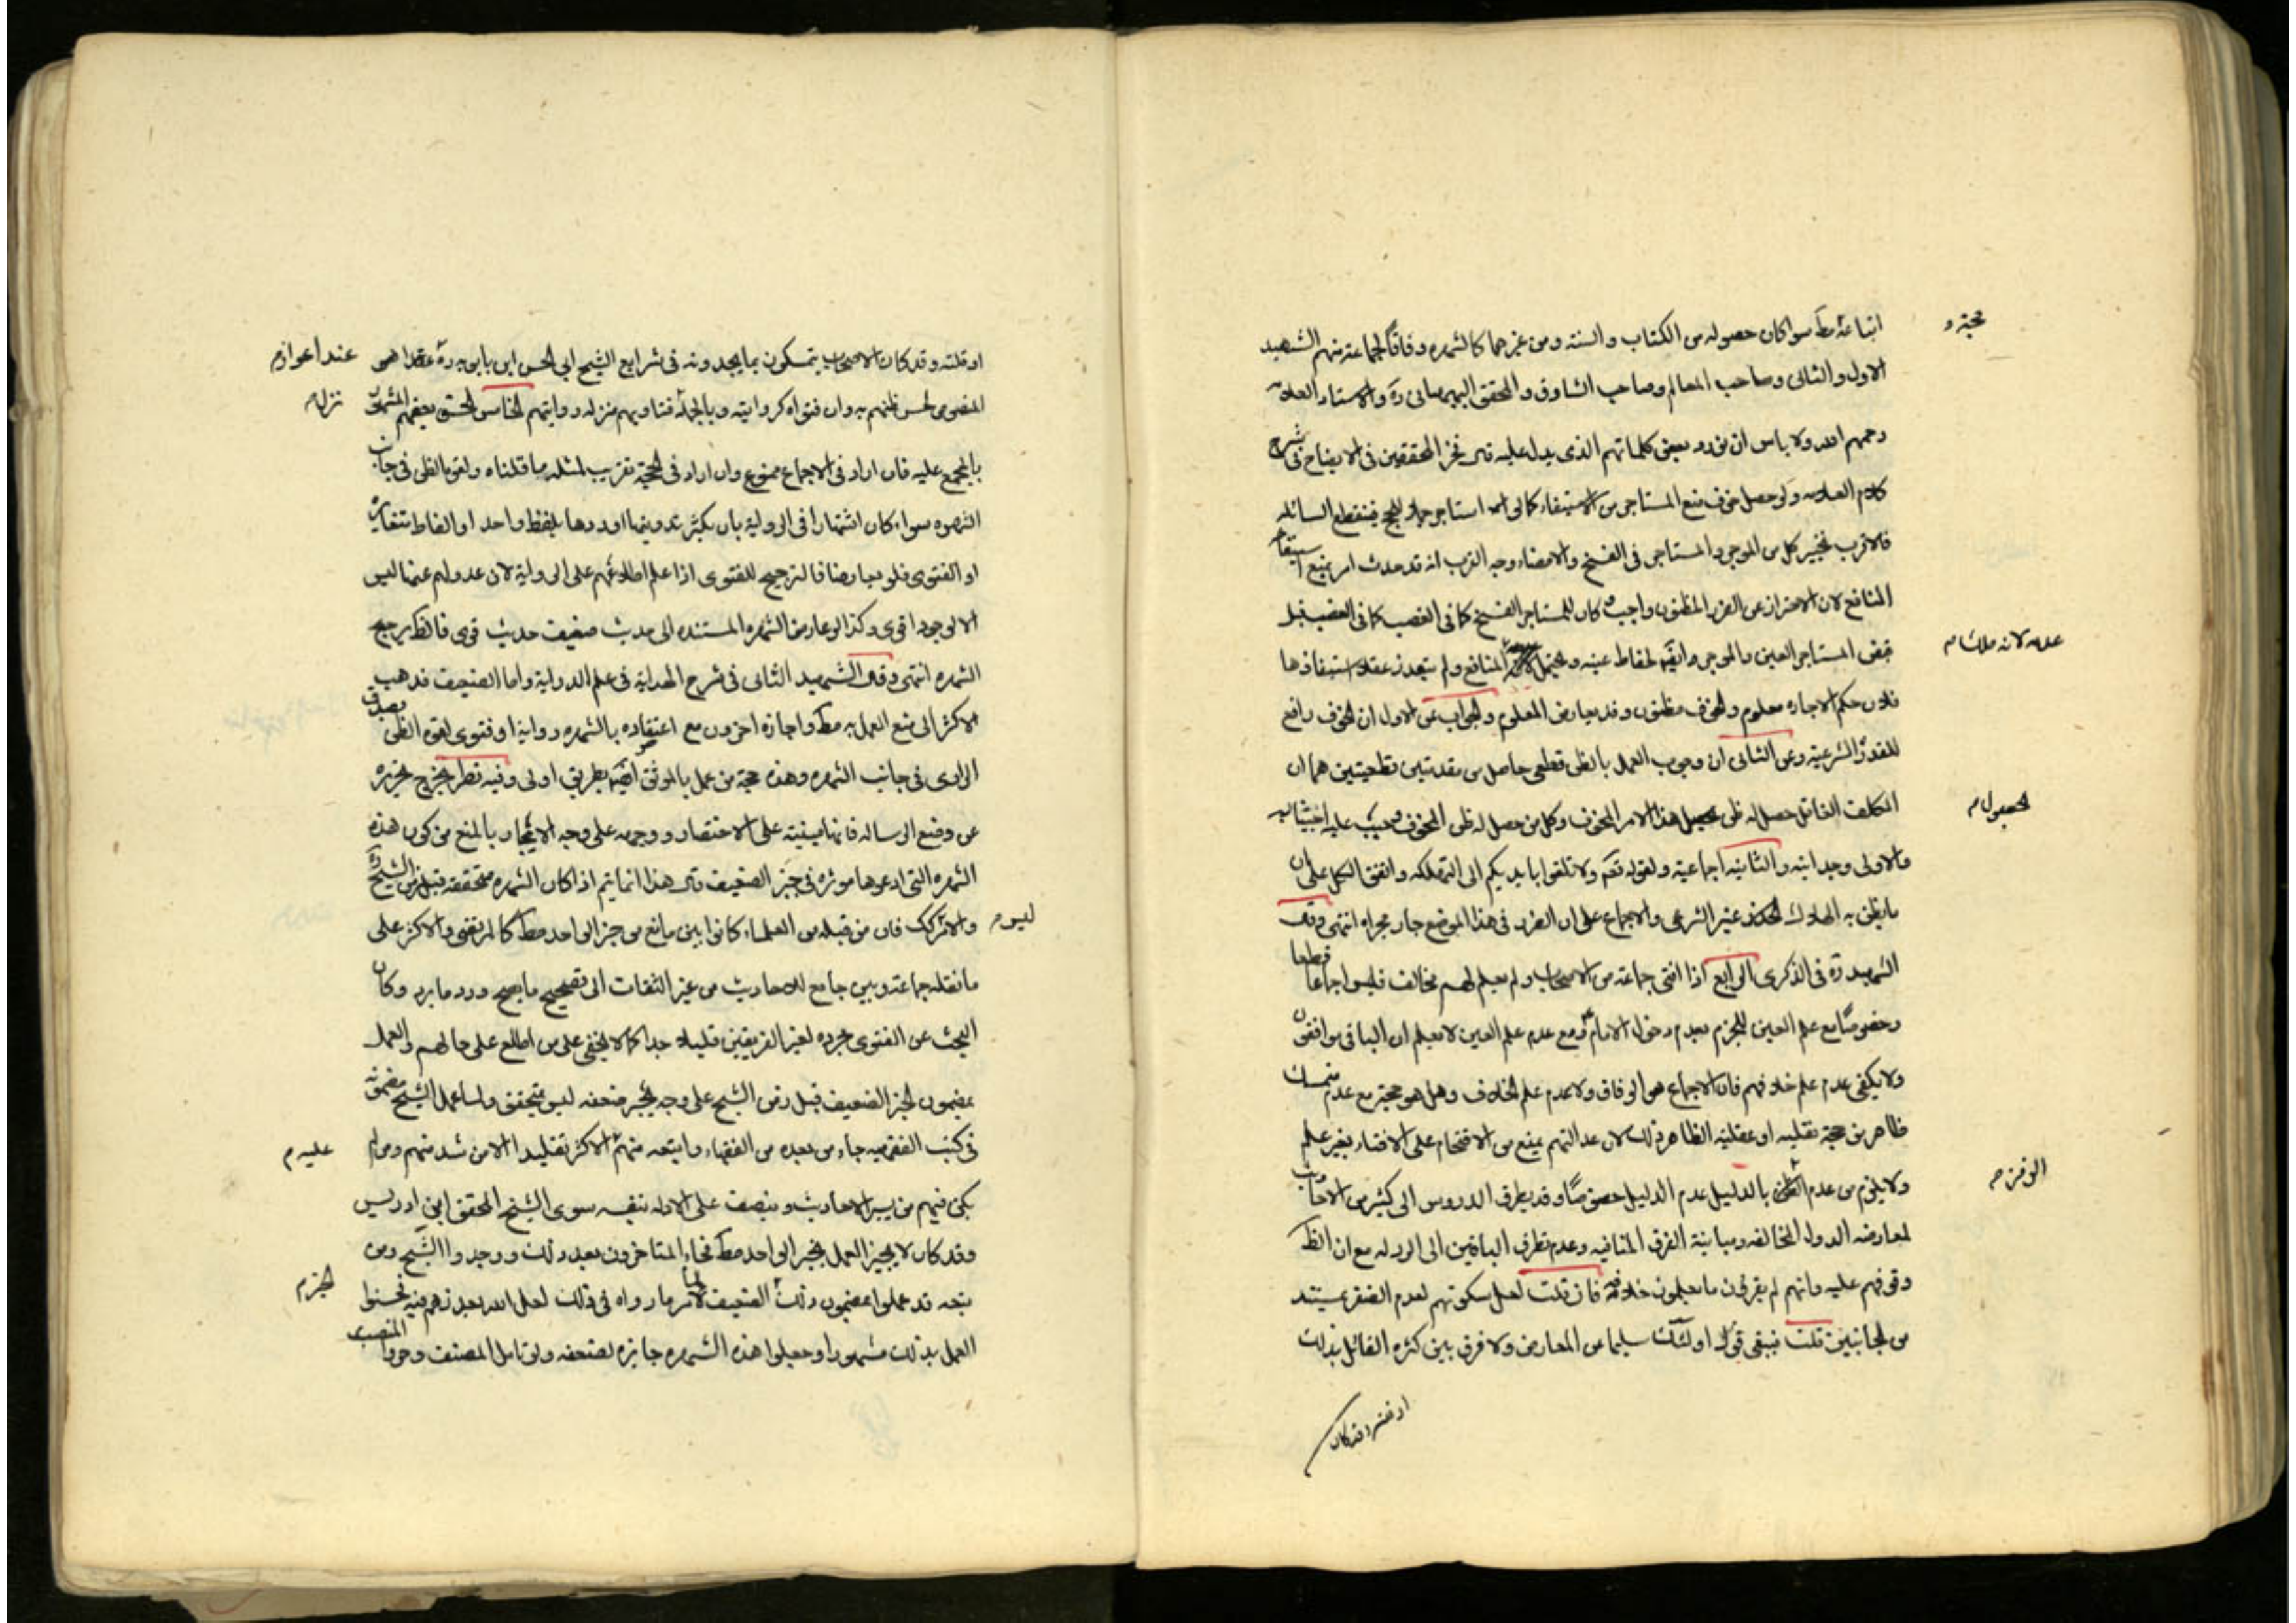 اتباعه مط سواء كان حصوله من الكتاب والسنة ومن غيرهما كالشهره وفاقا لجماعة منهم الشهيد
حجية و
الاول والثانى وصاحب المعالم وصاحب الشاوق والمحقق البهبهانى ره والاستاد العلامة
رحمهم الله ولا باس ان نورد بعض كلماتهم الذى يدل عليه قال فخر المحققين فى الايضاح فى شرح
كلام العلامه ولو حصل خوف منع المستاجر من الاستيفاء كالو استاجر جملا للحج فينقطع السائله
فالاقرب تخيير كل من الموجر والمستاجر فى الفسخ والامضاء وجه القرب انه قد حدث امر يمنع استيفاء
المنافع لان الاحتراز عن الضرر المظنون واجب وكان للمستاجر الفسخ كما فى الغصب كما فى الغصب قبل
قبض المستاجر العين والموجر وايضا عينه ويحتمل المنافع ولم يتعذر عقلا استيفاؤها
عدمه لانه ملك م
فلان حكم الاجاره معلوم والخوف مظنون وقد يعارض المعلوم والجواب عن الاول ان الخوف رافع
للقدرة الشرعية وعن الثانى ان وجوب العمل بالظن قطعى حاصل من مقدمتين قطعيتين هما ان
المكلف الغافل حصل له ظن هذا الامر المخوف وكل من حصل له ظن المخوف وجب عليه اجتنابه
لحصول م
والاولى وجدانيه والثانيه اجماعية ولقوله تعم ولا تلقوا بايديكم الى التهلكه واتفق الكل على ان
ما يظن به الهلاك غير الشرعى والاجماع على ان الضرر فى هذا الموضع جار مجراه انتهى وقال
الشهيد ره فى الذكرى الرابع اذا افتى جماعة من الاصحاب ولم يعلم لهم مخالف فليس اجماعا قطعا
وخصوصًا مع علم العين للجزم بعدم دخول الامام ومع عدم علم العين لا يعلم ان الباقى موافقون
ولا يكفى عدم علم خلافهم فان الاجماع هو الوفاق ولا عدم علم الخلاف وهل هو حجة مع عدم متمسك
ظاهر من حجة نقليه او عقلية الظاهر ذلك لان عدالتهم يمنع من الاقتحام على الافتاء بغير علم
ولا يلزم من عدم الظفر بالدليل عدم الدليل خصوصًا وقد يطرق الدروس الى كثير من الاحاديث
لمعارضه الدول المخالفه ومباينة الفرق المنافيه وعدم تطرق الباقين الى الرد له مع ان الظ
وقوفهم عليه وانهم لم يقرون ما يعلمون خلافه فان قلت لعل سكوتهم لعدم الضفر بمستند
من الجانبين قلت فيبقى قول اولئك سليما عن المعارض ولا فرق بين كثره القائل بذلك
او قلته وقد كان
او قلته وقد كان الاصحاب يتمسكون بما يجدونه فى شرايع الشيخ ابى الحسن ابن بابويه ره
عند اعواز م
النصوص لحسن ظنهم به وان فتواه كروايته وبالجملة فتاويهم منزله روايتهم الخامس الحق بعضهم المشهور
نزل م
بالمجمع عليه فان اراد فى الاجماع ممنوع وان اراد فى الحجية فقريب لمثله ما قلناه ولقوه الظن فى جانب
الشهره سواء كان اشتهارا فى الرواية بان يكثر تدوينها اوردها بلفظ واحد او الفاظ متغايرة
او الفتوى فلو تعارضا فالترجيح للفتوى اذا علم اطلاعهم على الرواية لان عدولهم عنها ليس
الا لوجود اقوى وكذا لو عارض الشهره المستنده الى حديث ضعيف حديث قوى فالظ يرجح
الشهره انتهى وقال الشهيد الثانى فى شرح الهداية فى علم الدراية واما الضعيف فذهب
الاكثر الى منع العمل به مط واجازه اخرون مع اعتضاده بالشهره رواية او فتوى لقوة الظن بصدق
الراوى فى جانب الشهره وهذه حجة من عمل بالموثق ايضا بطريق اولى وفيه نظر يخرج تحريره
عن وضع الرساله فانها مبنية على الاختصار ووجهه على وجه الايجاز بالمنع من كون هذه
الشهره التى ادعوها موثره فى جبر الضعيف فان هذا انما يتم اذا كان الشهره متحققه قبل زمن الشيخ ره
والامر كك فان من قبله من العلماء كانوا بين مانع من خبر الواحد مط كالمرتضى والاكثر على
ليس م
ما نقله جماعة وبين جامع للاحاديث من غير التفات الى تصحيح ما يصح ورد ما يرد وكان
البحث عن الفتوى مجرده لغير الفريقين قليلا جدا كما لا يخفى على من اطلع على حالهم والعمل
بمضمون الخبر الضعيف قبل زمن الشيخ على وجه يجبر ضعفه ليس متحقق ولما عمل الشيخ بمضمونه
فى كتب الفقهيه جاء من بعده من الفقهاء واتبعه منهم الاكثر تقليدا الا من شذ منهم ولم
عليه م
يكن فيهم من يسبر الاحاديث وينصف على الادله بنفسه سوى الشيخ المحقق ابن ادريس
وقد كان لا يجيز العمل بخبر الواحد مط فجاء المتاخرون بعد ذلك ووجدوا الشيخ ومن
تبعه قد عملوا بمضمون ذلك الضعيف لامر ما راه فى ذلك لعل الله يعذرهم فيه فحسبوا
الخبر م
العمل بذلك مشهورا وجعلوا هذه الشهره جابره لضعفه ولو تامل المصنف وحرر المنصب